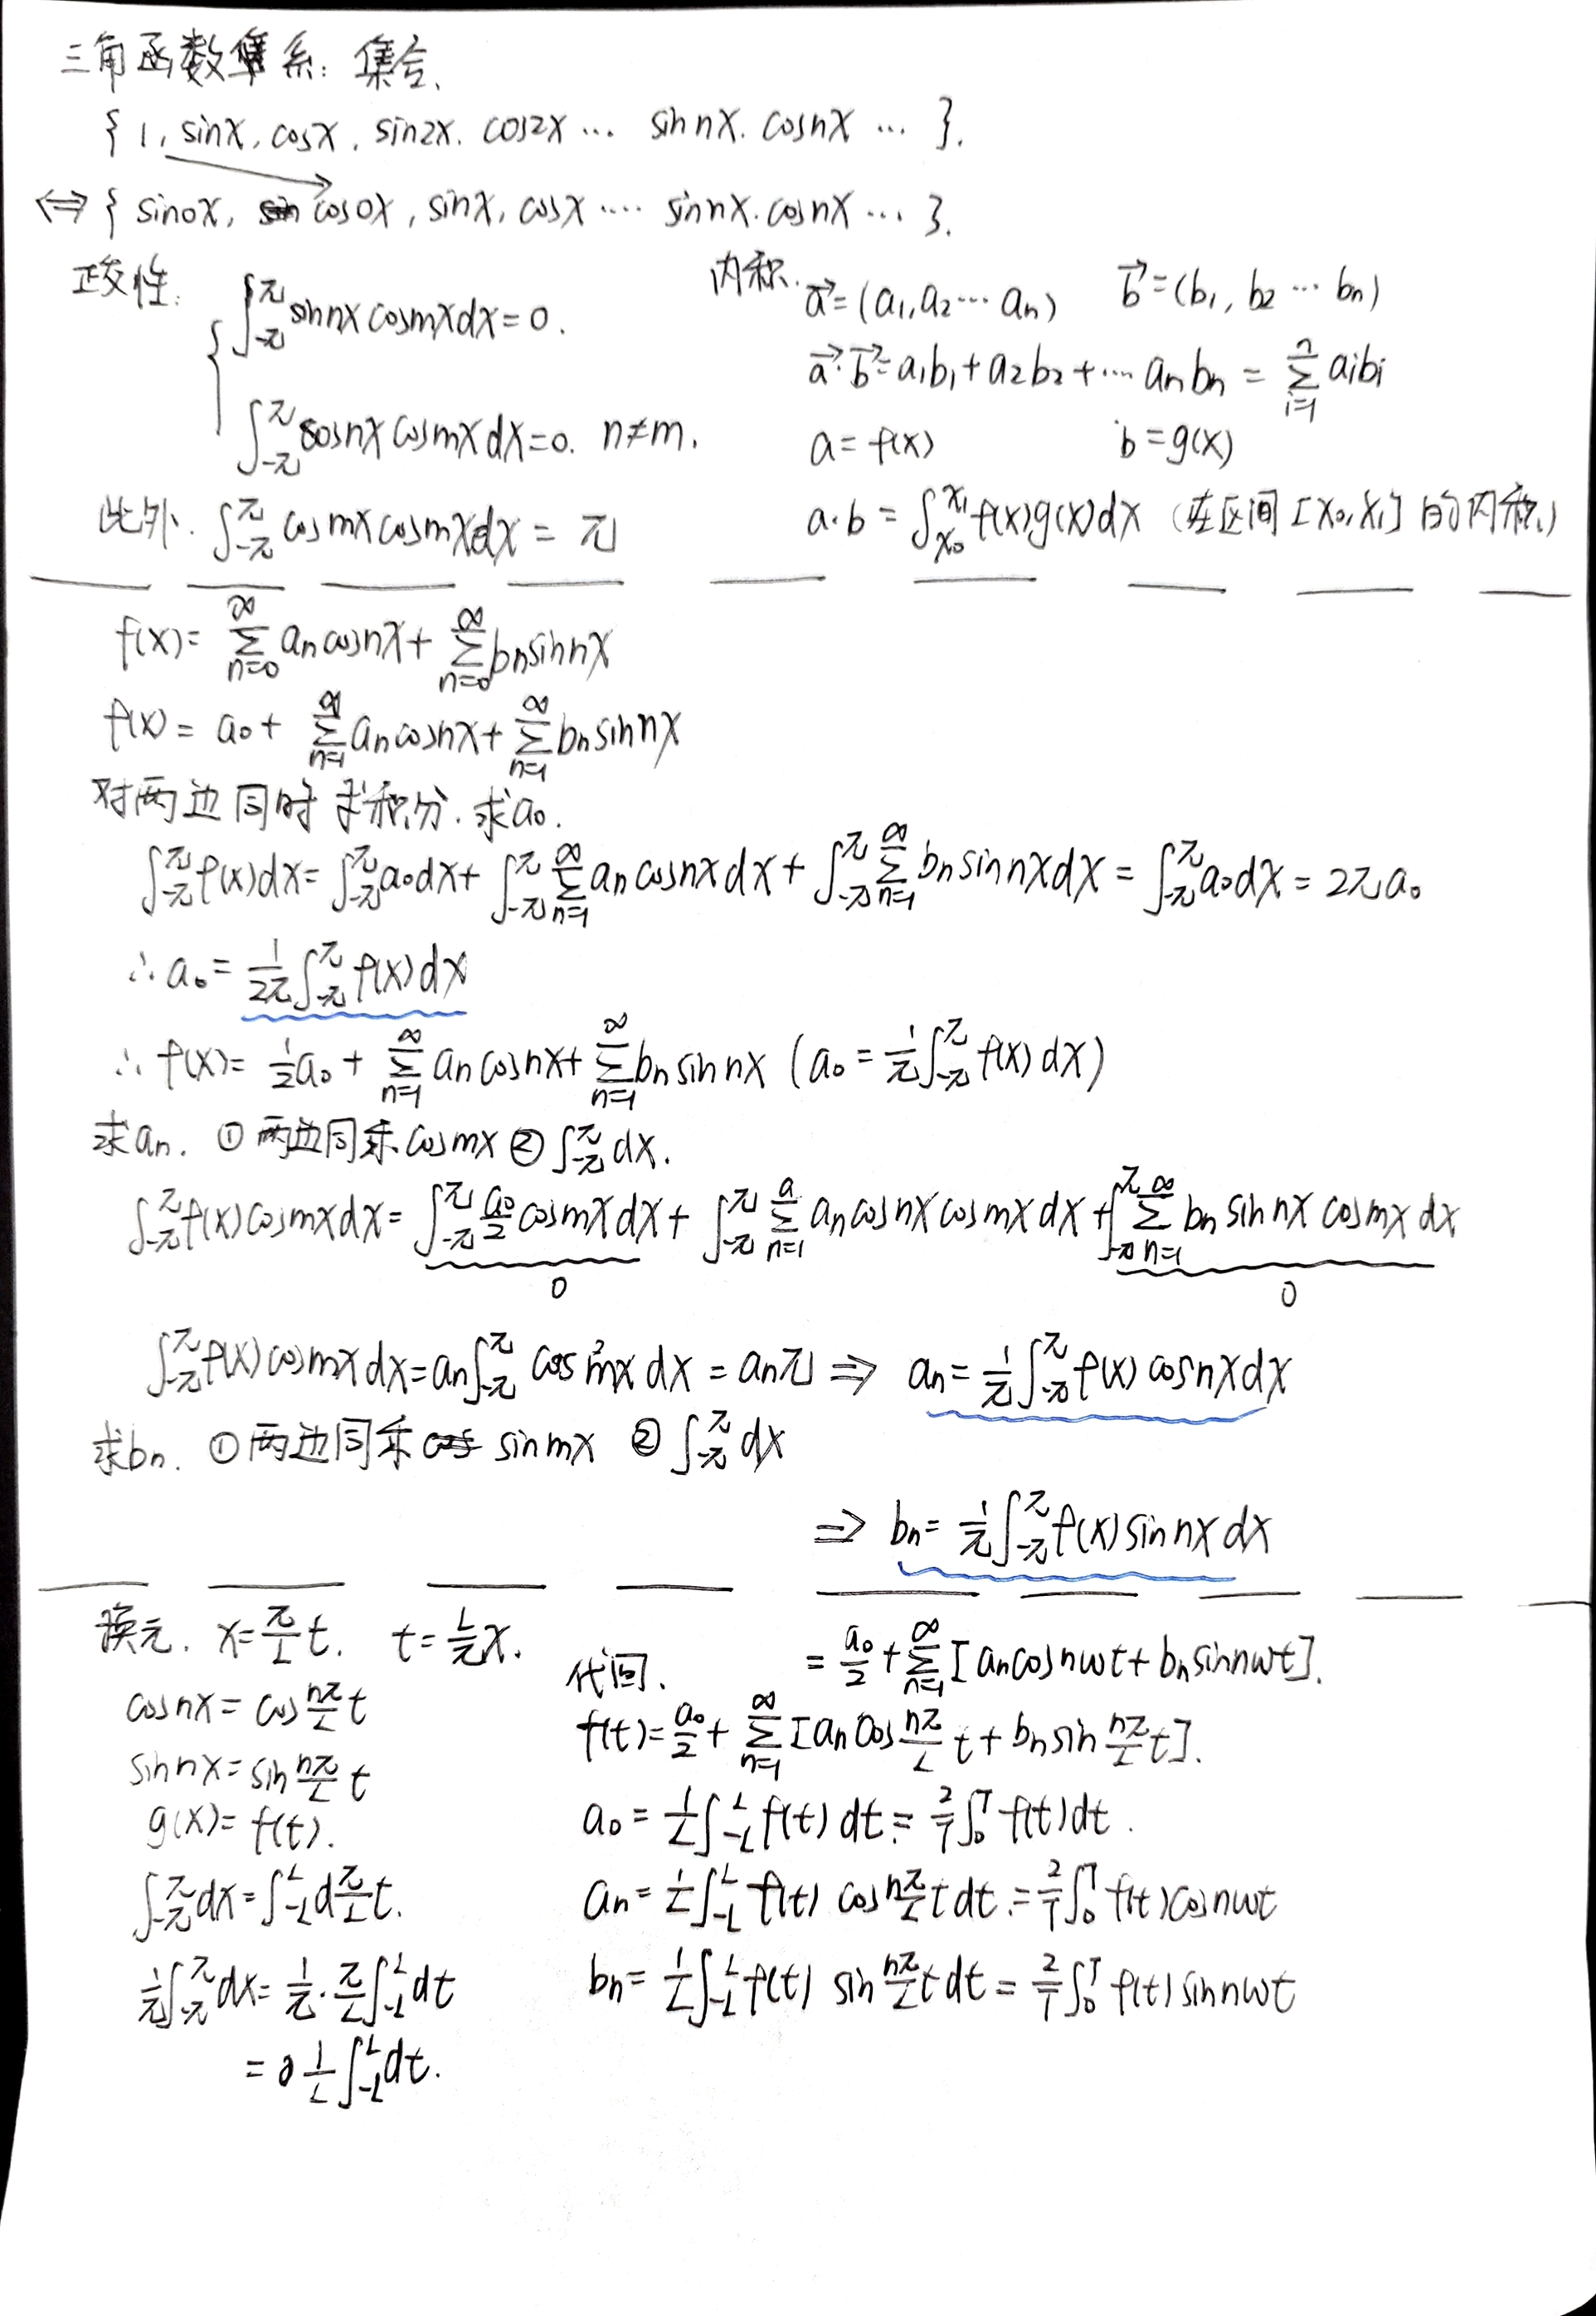 三角函数系：集合.
{ 1, sinx, cosx, sin2x. cos2x … sinnx. cosnx … }.
⇔ { sin0x, cos0x, sinx, cosx …. sinnx. cosnx … }.
正交性:
∫_{-π}^{π} sinnx cosmx dx = 0.
∫_{-π}^{π} cosnx cosmx dx = 0. n≠m.
此外. ∫_{-π}^{π} cosmx cosmx dx = π
内积. a⃗ = (a₁, a₂ … aₙ) b⃗ = (b₁, b₂ … bₙ)
a⃗·b⃗ = a₁b₁ + a₂b₂ + … aₙbₙ = Σ_{i=1}^{n} aᵢbᵢ
a = f(x) b = g(x)
a·b = ∫_{x₀}^{x₁} f(x)g(x)dx (在区间[x₀,x₁]的内积.)
f(x) = Σ_{n=0}^{∞} aₙcosnx + Σ_{n=0}^{∞} bₙsinnx
f(x) = a₀ + Σ_{n=1}^{∞} aₙcosnx + Σ_{n=1}^{∞} bₙsinnx
对两边同时求积分. 求a₀.
∫_{-π}^{π} f(x)dx = ∫_{-π}^{π} a₀dx + ∫_{-π}^{π} Σ_{n=1}^{∞} aₙcosnxdx + ∫_{-π}^{π} Σ_{n=1}^{∞} bₙsinnxdx = ∫_{-π}^{π} a₀dx = 2πa₀
∴ a₀ = 1/2π ∫_{-π}^{π} f(x)dx
∴ f(x) = ½a₀ + Σ_{n=1}^{∞} aₙcosnx + Σ_{n=1}^{∞} bₙsinnx (a₀ = 1/π ∫_{-π}^{π} f(x)dx)
求aₙ. ① 两边同乘cosmx ② ∫_{-π}^{π} dx.
∫_{-π}^{π} f(x)cosmxdx = ∫_{-π}^{π} a₀/2 cosmxdx + ∫_{-π}^{π} Σ_{n=1}^{a} aₙcosnxcosmxdx + ∫_{-π}^{π} Σ_{n=1}^{∞} bₙsinnxcosmxdx
0 0
∫_{-π}^{π} f(x)cosmxdx = aₙ∫_{-π}^{π} cos²mxdx = aₙπ ⇒ aₙ = 1/π ∫_{-π}^{π} f(x)cosnxdx
求bₙ. ① 两边同乘 sinmx ② ∫_{-π}^{π} dx
⇒ bₙ = 1/π ∫_{-π}^{π} f(x)sinnxdx
换元. x = π/L t. t = L/π x.
cosnx = cos nπ/L t
sinnx = sin nπ/L t
g(x) = f(t).
∫_{-π}^{π} dx = ∫_{-L}^{L} d π/L t.
1/π ∫_{-π}^{π} dx = 1/π · π/L ∫_{-L}^{L} dt
= 1/L ∫_{-L}^{L} dt.
代回.
= a₀/2 + Σ_{n=1}^{∞} [aₙcosnωt + bₙsinnωt].
f(t) = a₀/2 + Σ_{n=1}^{∞} [aₙcos nπ/L t + bₙsin nπ/L t].
a₀ = 1/L ∫_{-L}^{L} f(t)dt = 2/T ∫_{0}^{T} f(t)dt.
aₙ = 1/L ∫_{-L}^{L} f(t) cos nπ/L t dt = 2/T ∫_{0}^{T} f(t)cosnωt
bₙ = 1/L ∫_{-L}^{L} f(t) sin nπ/L t dt = 2/T ∫_{0}^{T} f(t)sinnωt